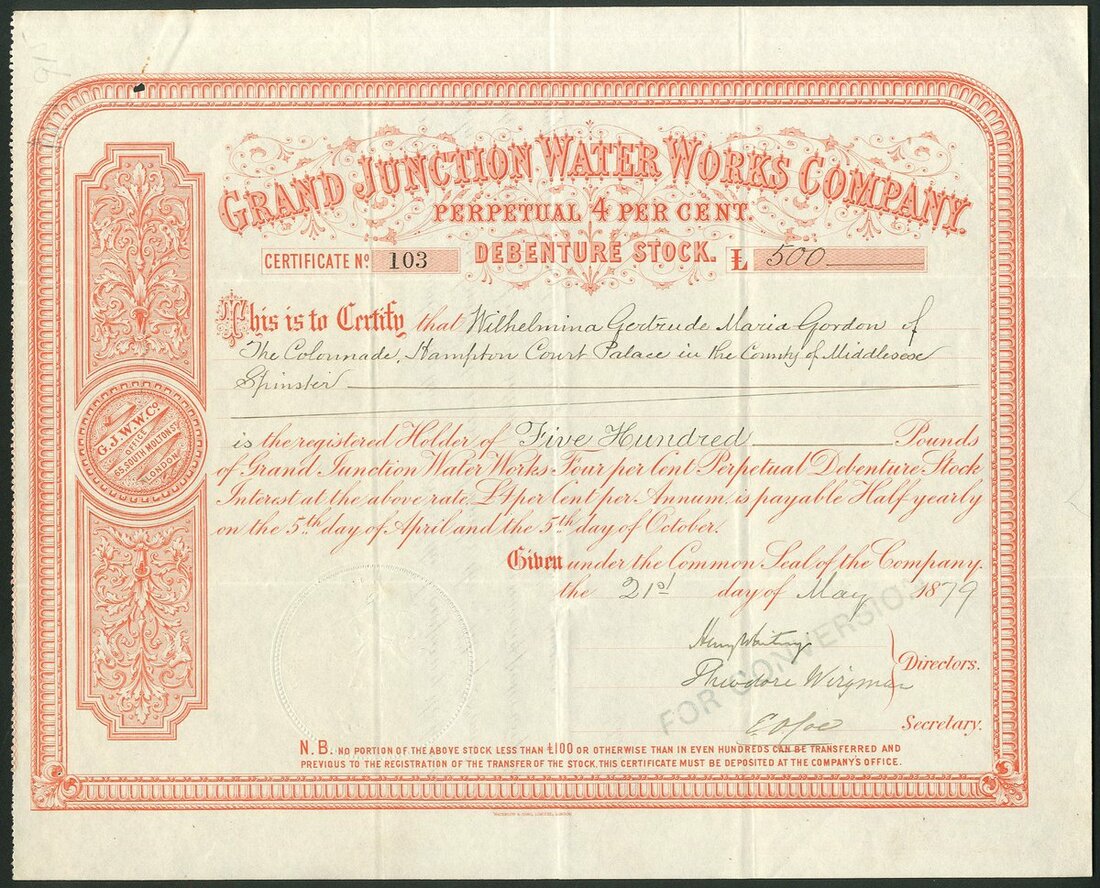 GRAND JUNCTION WATER WORKS COMPANY.
PERPETUAL 4 PER CENT.
DEBENTURE STOCK.
CERTIFICATE No. 103
£ 500
This is to Certify that Wilhelmina Gertrude Maria Gordon of
The Colonnade, Hampton Court Palace in the County of Middlesex
Spinster
is the registered Holder of Five Hundred Pounds
of Grand Junction Water Works Four per Cent Perpetual Debenture Stock
Interest at the above rate, £4 per Cent per Annum, is payable Half yearly
on the 5th day of April and the 5th day of October.
Given under the Common Seal of the Company.
the 21st day of May 1879
Henry Whiting
Theodore Wirgman
Directors.
Secretary.
FOR CONVERSIO
G.J.W.W.Co.
OFFICE
65, SOUTH MOLTON ST.
LONDON
N.B. NO PORTION OF THE ABOVE STOCK LESS THAN £100 OR OTHERWISE THAN IN EVEN HUNDREDS CAN BE TRANSFERRED AND
PREVIOUS TO THE REGISTRATION OF THE TRANSFER OF THE STOCK, THIS CERTIFICATE MUST BE DEPOSITED AT THE COMPANY'S OFFICE.